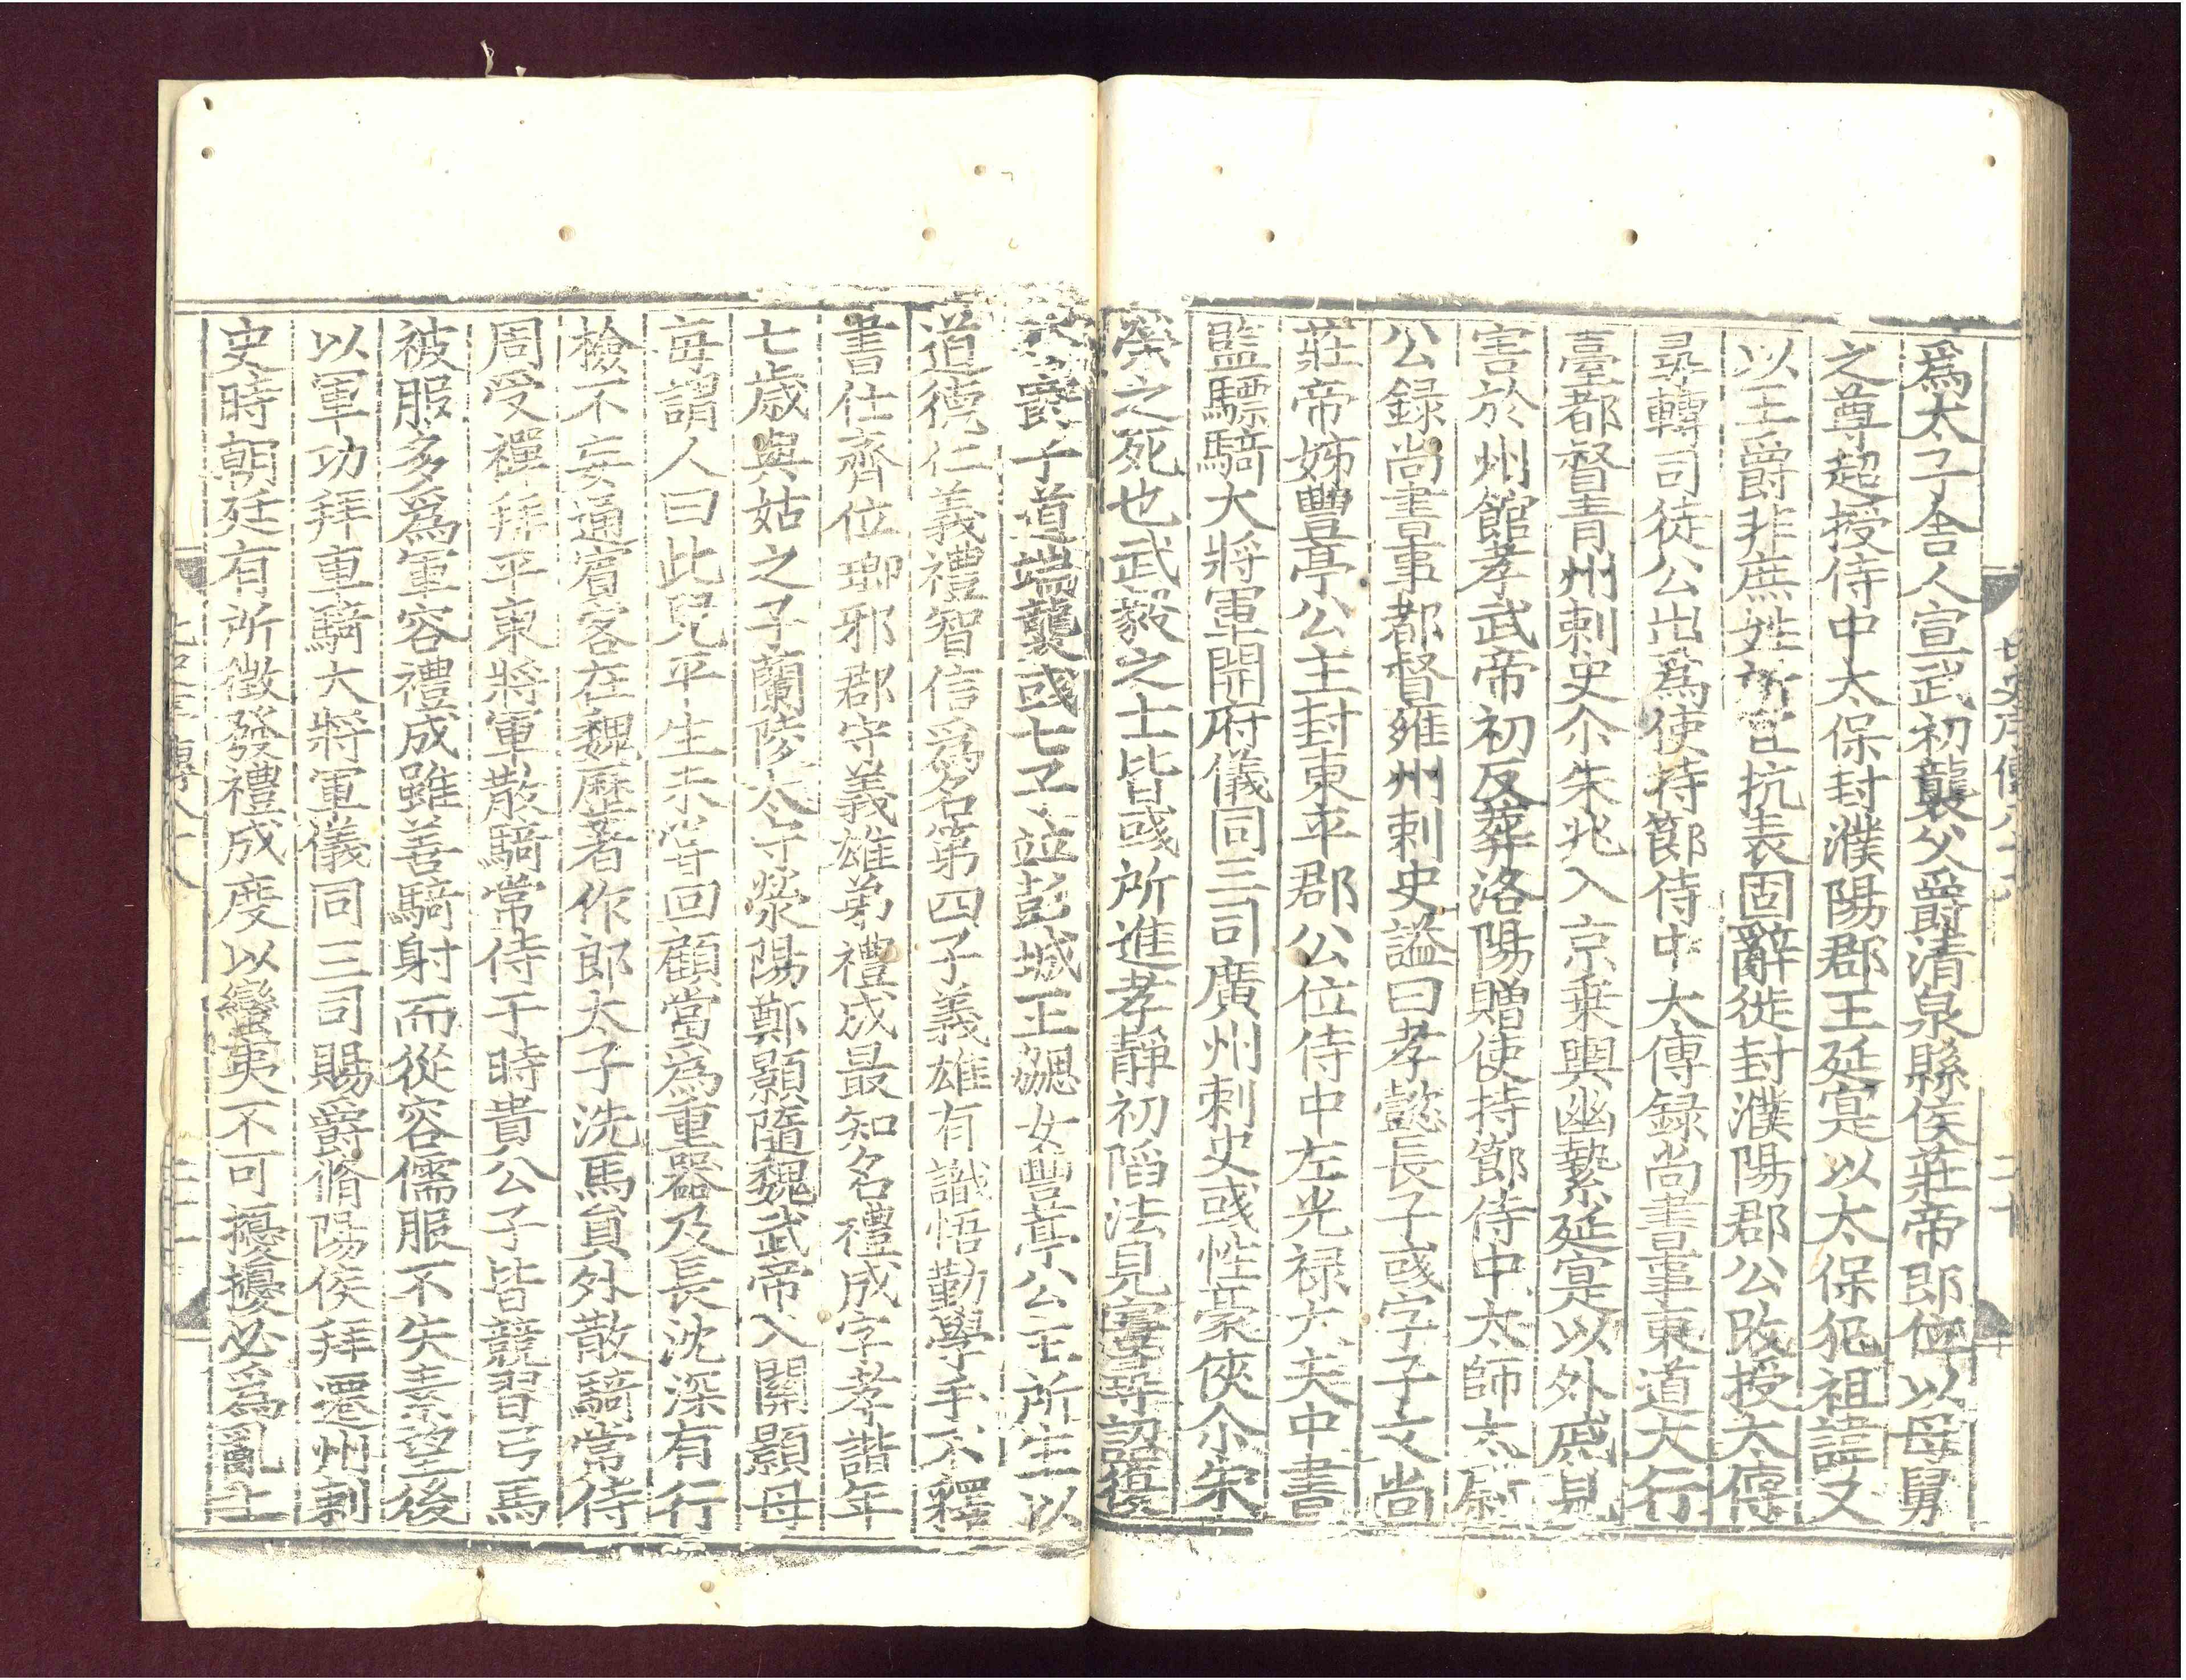 爲太子舍人宣武初襲父爵清泉縣侯莊帝即位以母舅
之尊超授侍中太保封濮陽郡王延寔以太保犯祖諱又
以王爵非庶姓所宜抗表固辭徙封濮陽郡公改授太傅
尋轉司徒公出爲使持節侍中大傅録尚書事東道大行
臺都督青州刺史尒朱兆入京乗輿幽縶延寔以外戚見
害於州館孝武帝初反葬洛陽贈使持節侍中太師太尉
公録尚書事都督雍州刺史謚曰孝懿長子彧字子文尚
莊帝姊豐亭公主封東平郡公位侍中左光禄大夫中書
監驃騎大將軍開府儀同三司廣州刺史彧性豪俠尒朱
榮之死也武毅之士皆彧所進孝靜初䧟法見害尋詔復
爵子道端襲彧七子並彭城王勰女豐亭公主所生以
道德仁義禮智信爲名第四子義雄有識悟勤學手不釋
書仕齊位瑯邪郡守義雄弟禮成最知名禮成字孝諧年
七歲與姑之子蘭陵太守滎陽鄭顥隨魏武帝入關顥母
每謂人曰此兒平生未嘗回顧當為重器及長沈深有行
檢不妄通賓客在魏歷著作郎太子洗馬貟外散騎常侍
周受禪拜平東將軍散騎常侍于時貴公子皆競習弓馬
被服多爲軍容禮成雖善騎射而從容儒服不失素望後
以軍功拜車騎大將軍儀同三司賜爵脩陽侯拜遷州刺
史時朝廷有所徵發禮成度以蠻夷不可擾擾必爲亂上